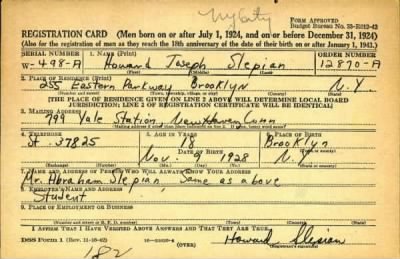 NY City
FORM APPROVED
Budget Bureau No. 33-R012-42
REGISTRATION CARD—(Men born on or after July 1, 1924, and on or before December 31, 1924)
(Also for the registration of men as they reach the 18th anniversary of the date of their birth on or after January 1, 1943.)
SERIAL NUMBER 1. NAME (Print) ORDER NUMBER
W-498-A Howard Joseph Slepian 12870-A
(First) (Middle) (Last)
2. PLACE OF RESIDENCE (Print)
255 Eastern Parkway Brooklyn N.Y.
(Number and street) (Town, township, village, or city) (County) (State)
[THE PLACE OF RESIDENCE GIVEN ON LINE 2 ABOVE WILL DETERMINE LOCAL BOARD
JURISDICTION; LINE 2 OF REGISTRATION CERTIFICATE WILL BE IDENTICAL]
3. MAILING ADDRESS
799 Yale Station New Haven Conn
[Mailing address if other than place indicated on line 2. If same, insert word same]
4. TELEPHONE 5. AGE IN YEARS 6. PLACE OF BIRTH
St. 37825 18 Brooklyn
DATE OF BIRTH
Nov. 1928 N.Y.
(Exchange) (Number) (Mo.) (Day) (Yr.) (State or country)
7. NAME AND ADDRESS OF PERSON WHO WILL ALWAYS KNOW YOUR ADDRESS
Mr. Abraham Slepian, Same as above
8. EMPLOYER'S NAME AND ADDRESS
Student
9. PLACE OF EMPLOYMENT OR BUSINESS
(Number and street or R. F. D. number) (Town) (County) (State)
I AFFIRM THAT I HAVE VERIFIED ABOVE ANSWERS AND THAT THEY ARE TRUE.
DSS Form 1 (Rev. 11-16-42) (OVER) Howard Slepian
182